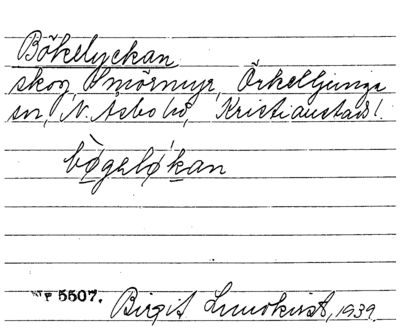 Bökelyckan
skog, Smörmyr, Örkelljunga
sn, N. Åsbo hd, Kristianstads l.
bø̀gəlø̀kan
NTP 5507. Birgit Lundkvist, 1939.